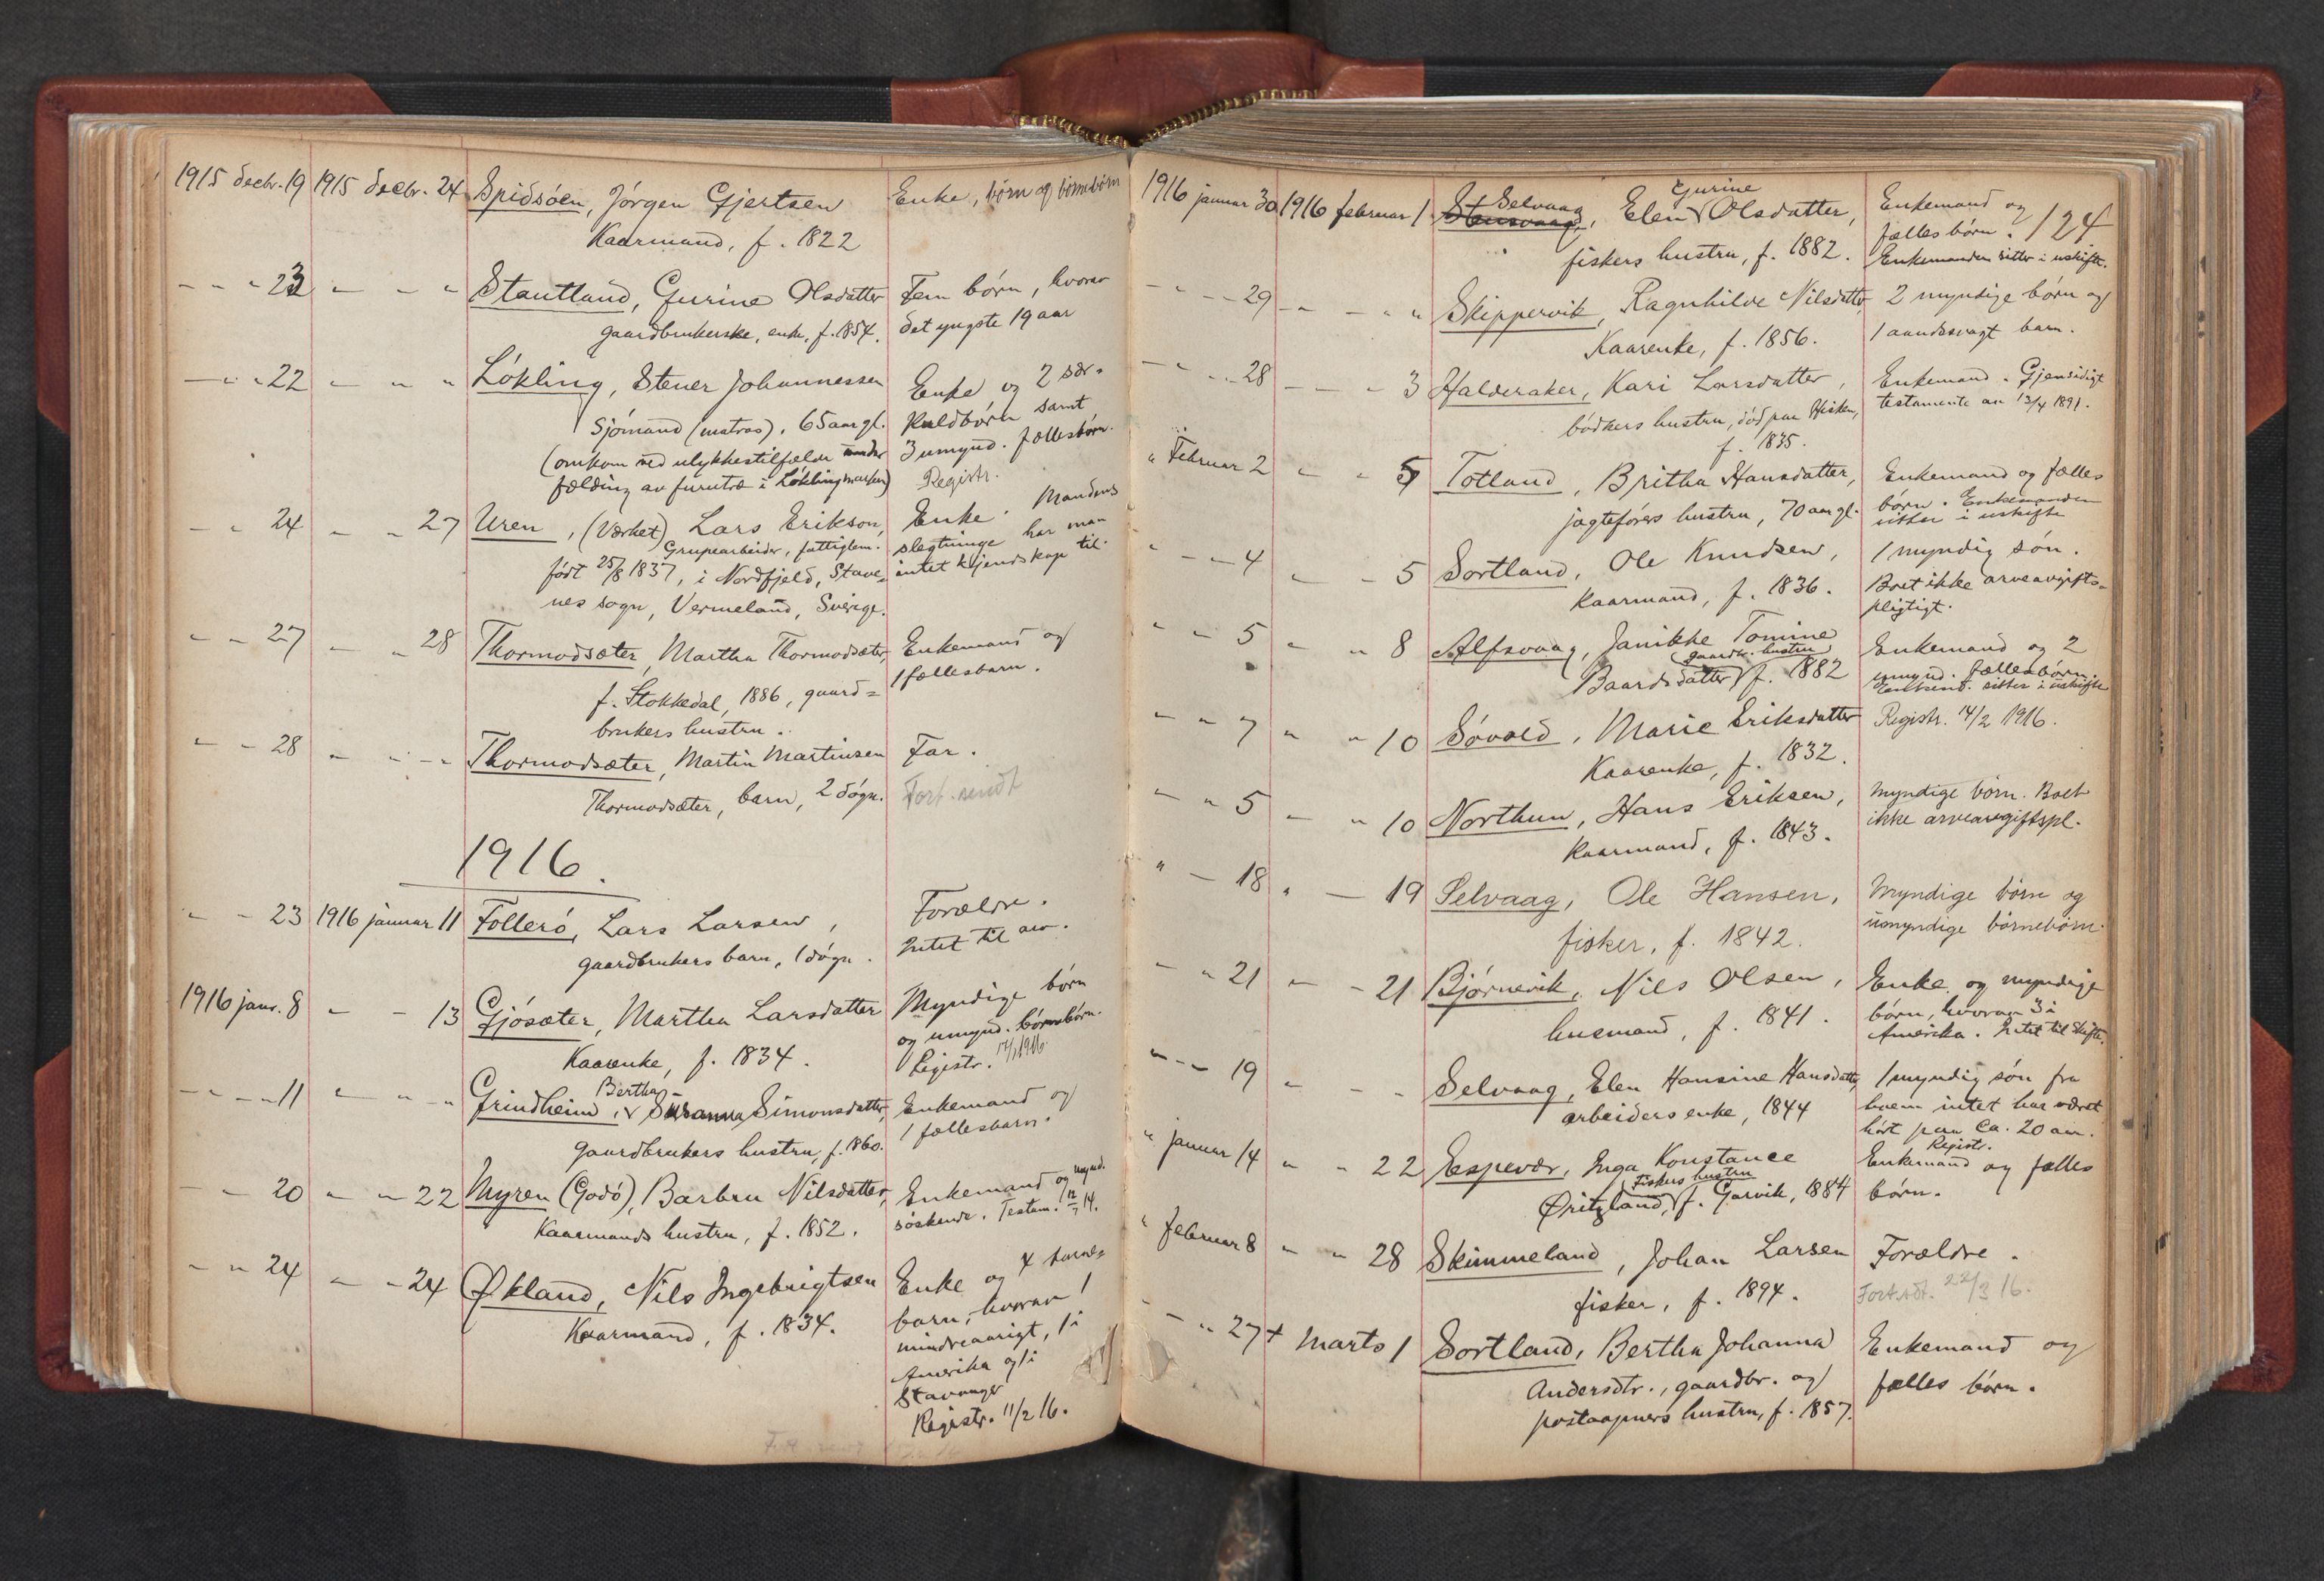 1915 decbr. 19 1915 decbr. 24 Spidsöen, Jörgen Gjertsen Enke, börn og börnebörn
Kaarmand, f. 1822
— — " 23 — — " Stautland, Gurine Olsdatter Fem börn, hvorav
gaardbrukerske, enke, f. 1854. det yngste 19 aar
— " " 22 — " " Lökling, Stener Johannessen Enke og 2 sær-
Sjömand (matros), 65 aar gl. kuldbörn samt
(omkom ved ulykkestilfælde under 3 umynd. fællesbörn.
fælding av furutræ i Löklingmarken) Registr.
— " 24 — " 27 Uren, (Værket) Lars Erikson, Enke. Mandens
Grupearbeider, fattiglem. slegtninge har man
født 25/8 1837, i Nordfjeld, Stave- intet kjendskap til.
nes sogn, Vermeland, Sverige.
— — 27 — " 28 Thormodsæter, Martha Thormodsæter, Enkemand og
f. Stokkedal, 1886, gaard= 1 fællesbarn.
brukers hustru.
— — 28 " " — " Thormodsæter, Martin Martinsen Far.
Thormodsæter, barn, 2 dögn. Fort. sendt
1916.
" — 23 1916 januar 11 Follerö, Lars Larsen, Forældre.
gaardbrukers barn, 1 dögn. Intet til arv.
1916 janr. 8 — — 13 Gjösæter, Martha Larsdatter Myndige börn
Kaarenke, f. 1834. og umynd. börnebörn.
Registr. 1916
Bertha
— " — " 11 — " — " Grindheim, Susanna Simonsdatter, Enkemand og
gaardbrukers hustru, f. 1860. 1 fællesbarn.
— " 20 " — 22 Myren (Godö), Barbru Nilsdatter, Enkemand og mynd.
Kaarmands hustru, f. 1852. söskende. Testam.
— " 24 — — 24 Økland, Nils Ingebrigtsen Enke og 4
Kaarmand, f. 1834. barn, hvorav 1
mindreaarigt, 1 i
Amerika og 1 i
Stavanger
Registr. 11/2 16.
124
Selvaag Gurine
1916 januar 30 1916 februar 1 Stensvaag, Elen Olsdatter, Enkemand og
fiskers hustru, f. 1882. fælles börn.
Enkemanden sitter i uskifte.
— " — 29 — " — " " Skippervik, Ragnhilde Nilsdatter, 2 myndige börn og
Kaarenke, f. 1856. 1 aandssvagt barn.
— " — " 28 — — " 3 Halderaker, Kari Larsdatter, Enkemand. Gjensidigt
bödkers hustru, död paa Hisken, testamente av 13/4 1891.
f. 1835.
" Februar 2 — " 5 Totland, Britha Hansdatter, Enkemand og fælles
jagteförers hustru, 70 aar gl. börn. Enkemanden
sitter i uskifte
" — 4 — — 5 Sortland, Ole Knudsen, 1 myndig sön.
Kaarmand, f. 1836. Boet ikke arveavgifts=
pligtigt.
" " 5 — " 8 Alfsvaag, Janikke Tomine Enkemand og 2
gaardbr. hustru
Baardsdatter, f. 1882 umynd. fællesbörn.
Enkemd. sitter i uskifte
— " 7 " " 10 Sövold, Marie Eriksdatter Registr. 14/2 1916.
Kaarenke, f. 1832.
— " 5 — " 10 Northun, Hans Eriksen, Myndige börn. Boet
Kaarmand, f. 1843. ikke arveavgiftspl.
" — 18 " — 19 Selvaag, Ole Hansen, Myndige börn og
fisker, f. 1842. umyndige börnebörn.
— " 21 — — 21 Björnevik, Nils Olsen, Enke og myndige
husmand, f. 1841. börn, hvorav 3 i
Amerika. Intet til Skifte.
" — 19 " — Selvaag, Elen Hansine Hansdatter, 1 myndig sön fra
arbeiders enke, 1844 hvem intet har været
hört paa ca. 20 aar.
Regist.
" januar 14 " " 22 Espevær, Inga Konstance Enkemand og fælles
Fiskers hustru
Øritzland, f. Garvik, 1884 börn.
" februar 8 " " 28 Skimmeland, Johan Larsen Forældre.
fisker, f. 1894. Fort. sdt. 22/3 16.
— " 27 + Marts 1 Sortland, Bertha Johanna Enkemand og
Andersdtr., gaardbr. og fælles börn.
postaapners hustru, f. 1857.